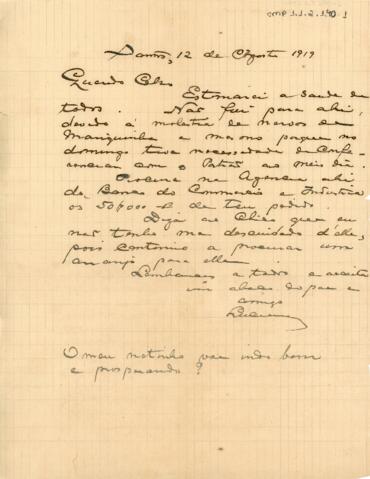 Santos, 12 de Agosto 1919
Querido Celso
Estimarei a saude de
todos. Não fui para ahi,
devido á molestia de nervos da
Mariquinha e mesmo porque no
domingo tive necessidade de confe-
renciar com o Patrão ao meio dia.
Procure na Agencia ahi
do Banco do Commercio e Industria
os 50$000 de teu pedido.
Diga ao Chico que eu
não tenho me descuidado d'elle,
pois continuo a procurar um
arranjo para elle.
Lembranças a todos e aceite
um abraço do pae e
amigo
O meu netinho vae indo bem
e prosperando?